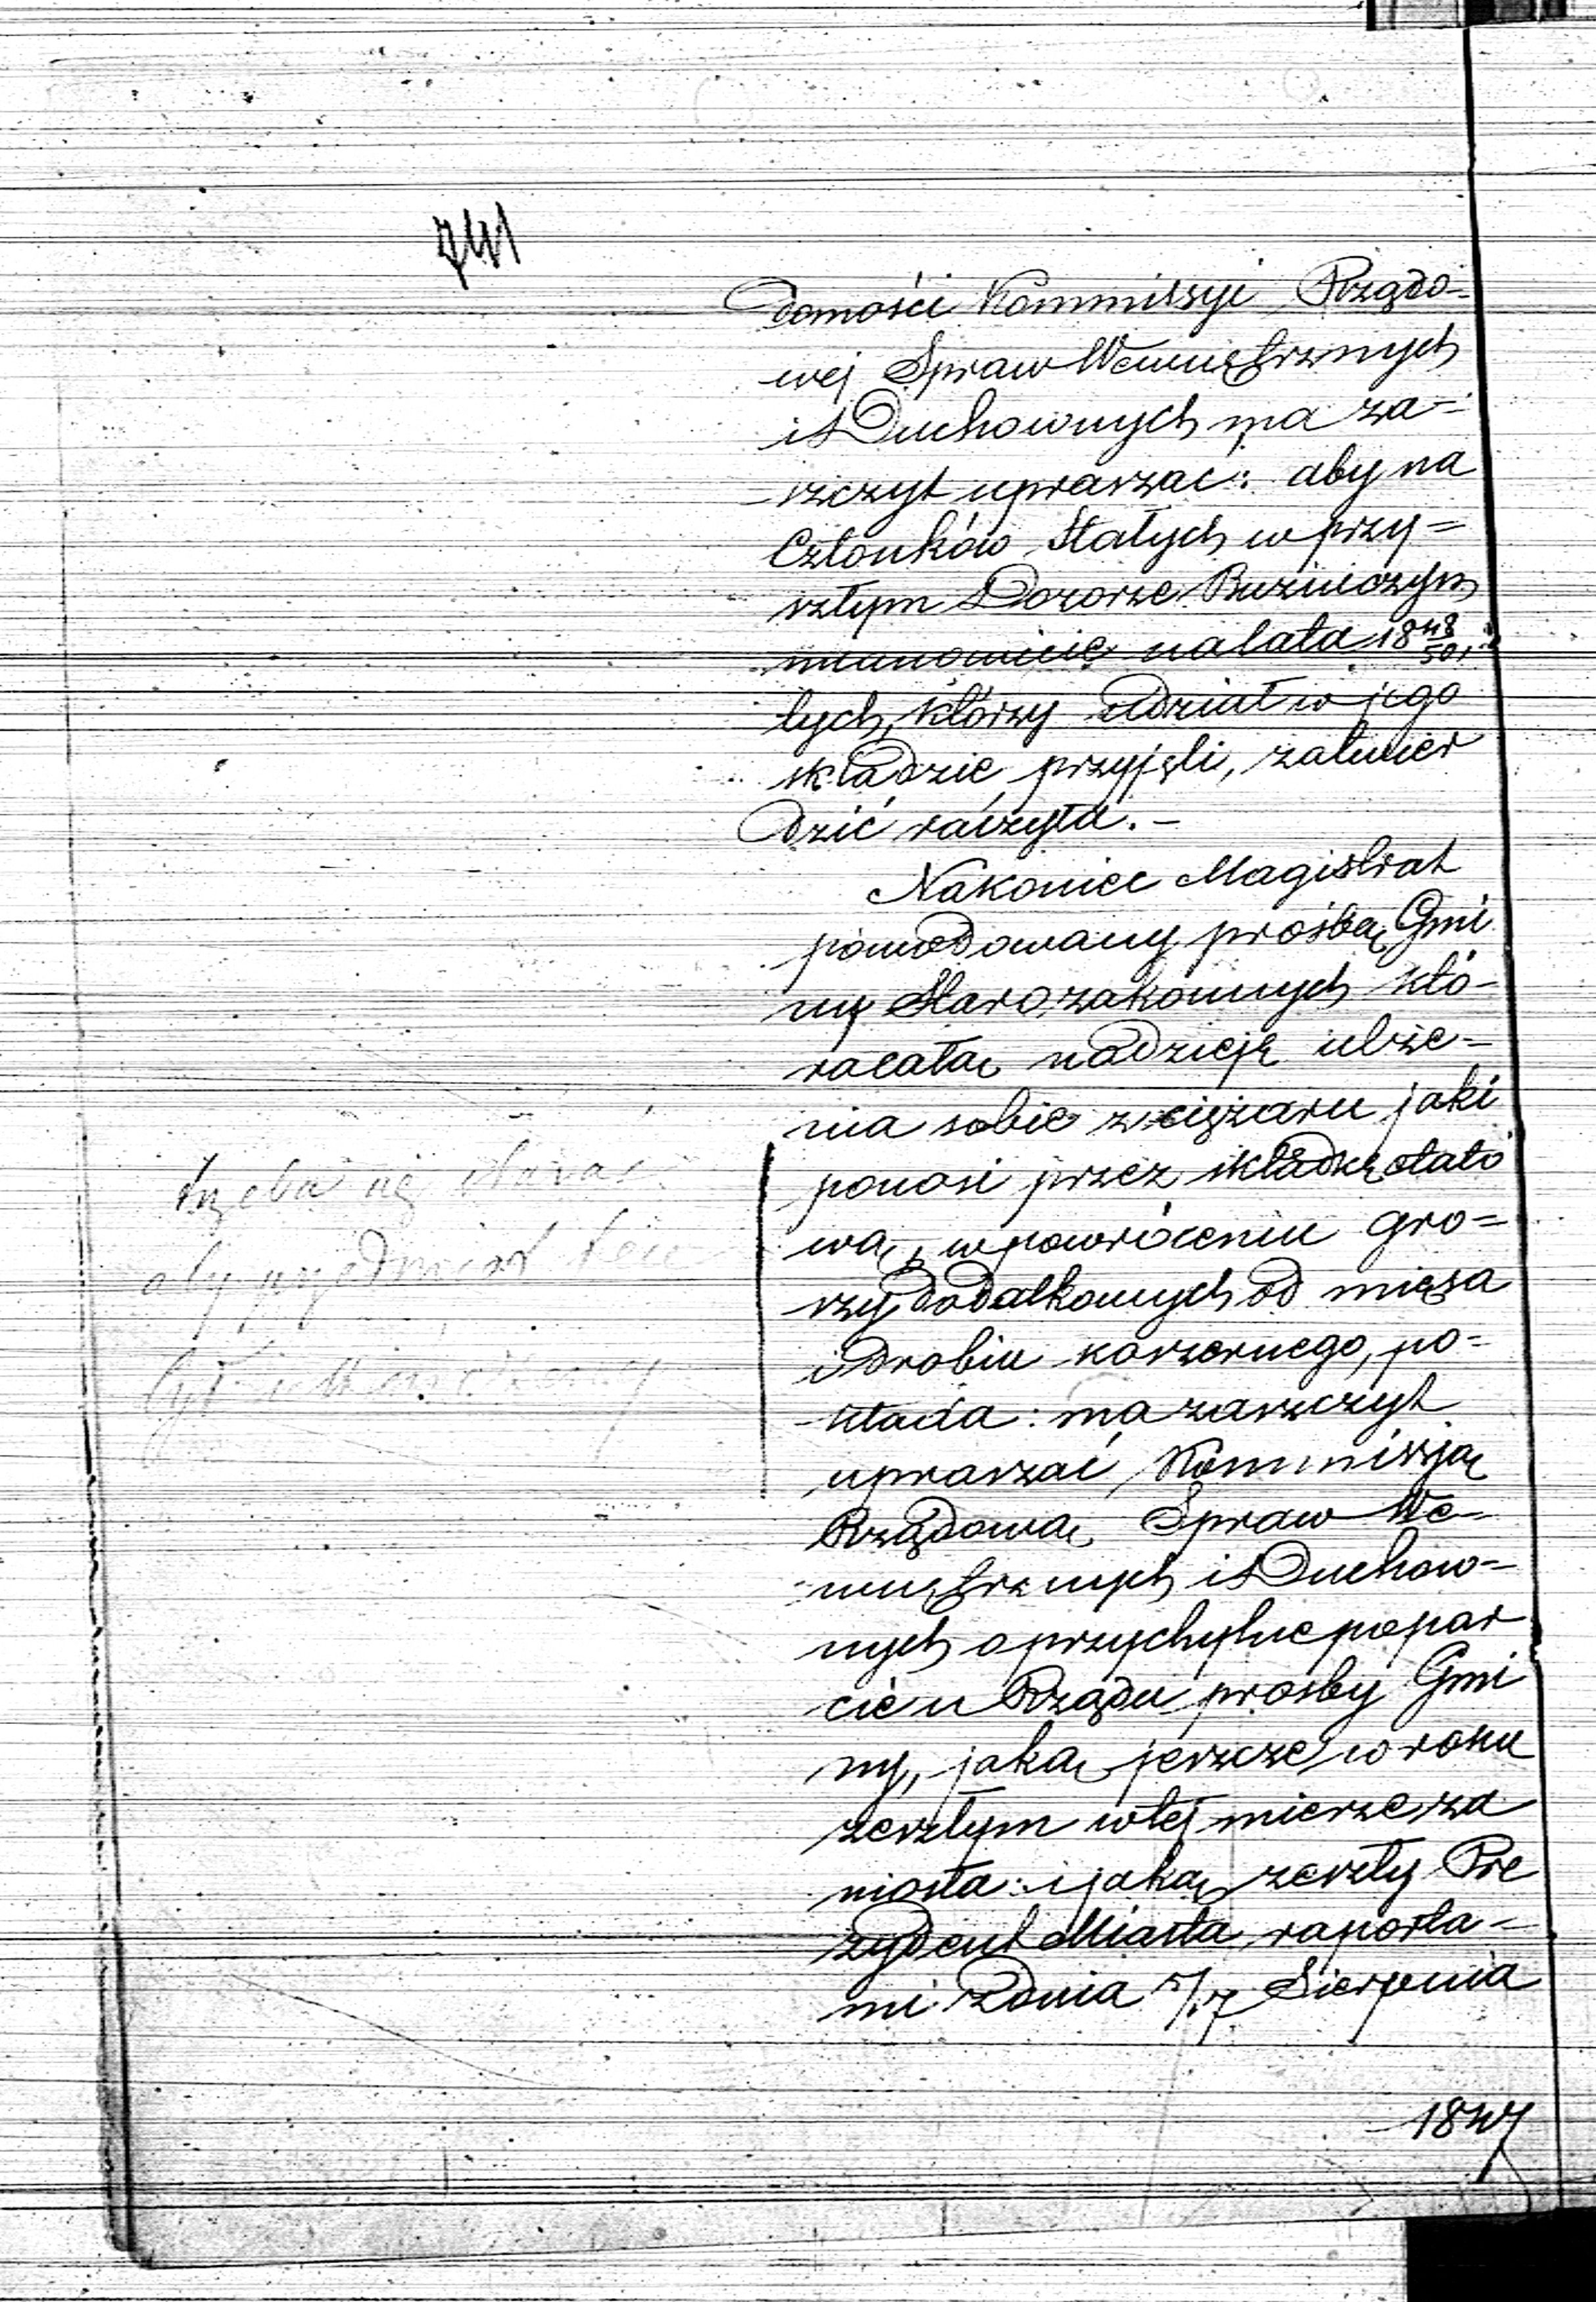 741
domości Kommissyi Rządo-
wej Spraw Wewnętrznych
i Duchownych ma za-
szczyt upraszać: aby na
Członków Stałych w przy=
szłym Dozorze Bużniczym
mianowicie na lata 18 48/50,
tych, którzy udział w jego
składzie przyjęli, zatwier
dzić raczyła.-
Nakoniec Magistrat
powodowany prośbą Gmi
ny Starozakonnych któ-
ra całą nadzieję ulże-
nia sobie z ciężaru jaki
ponosi przez składkę etato
wą, w powróceniu gro=
szy dodatkowych od mięsa
i drobiu koszernego, po=
kłada: ma zaszczyt
upraszać Kommissją
Rządową Spraw We-
wnętrznych i Duchow=
nych o przychylne popar
cie u Rządu prośby Gmi
ny, jaką jeszcze w roku
zeszłym w tej mierze za
niosła: i jaką zeszły Pre
zydent Miasta raporta-
mi z dnia 5/17 Sierpnia
1847
trzeba się starać
aby przedmiot ten
był